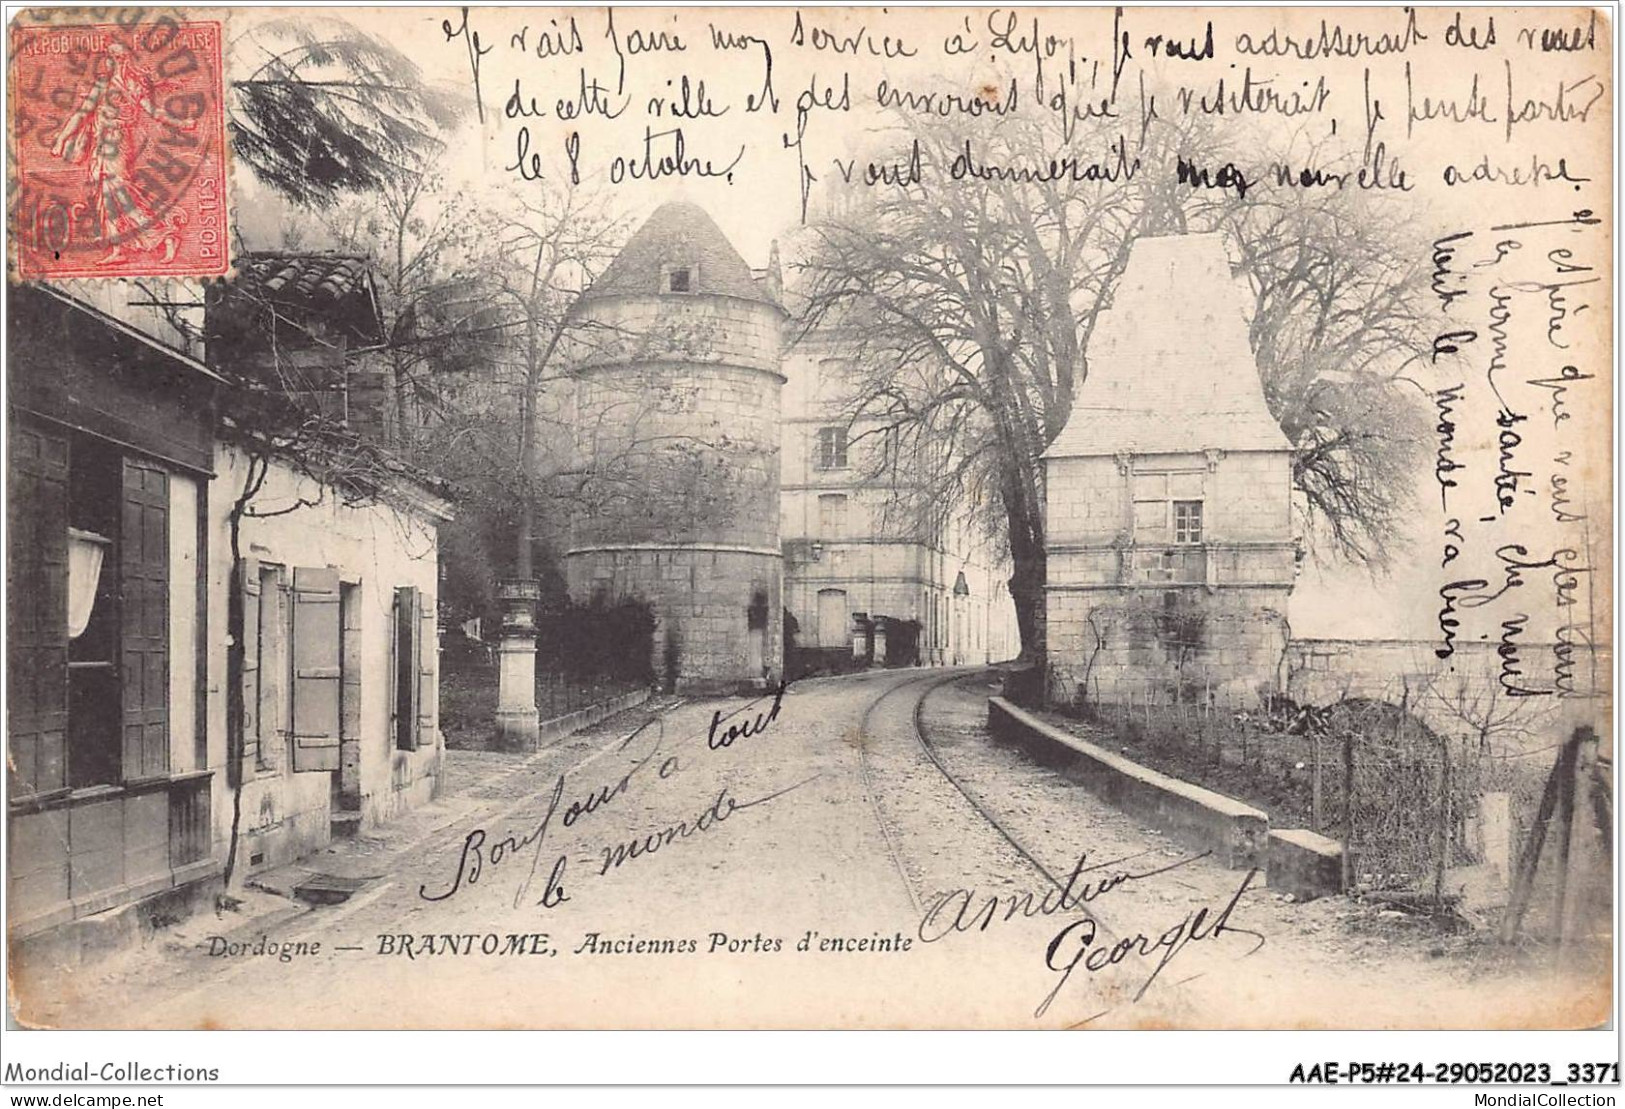 Je vais faire mon service à Lyon, je vous adresserait des vues
de cette ville et des environs que je visiterait, je pense partir
le 8 octobre. Je vous donnerait ma nouvelle adresse.
et j'espère que vous êtes tous
en bonne santée, chez nous
tout le monde va bien.
RÉPUBLIQUE FRANÇAISE
10
POSTES
Bonjour à tout
le monde
Amitien
Georges
Dordogne — BRANTOME, Anciennes Portes d'enceinte
Mondial-Collections
AAE-P5#24-29052023_3371
delcampe.net
MondialCollection